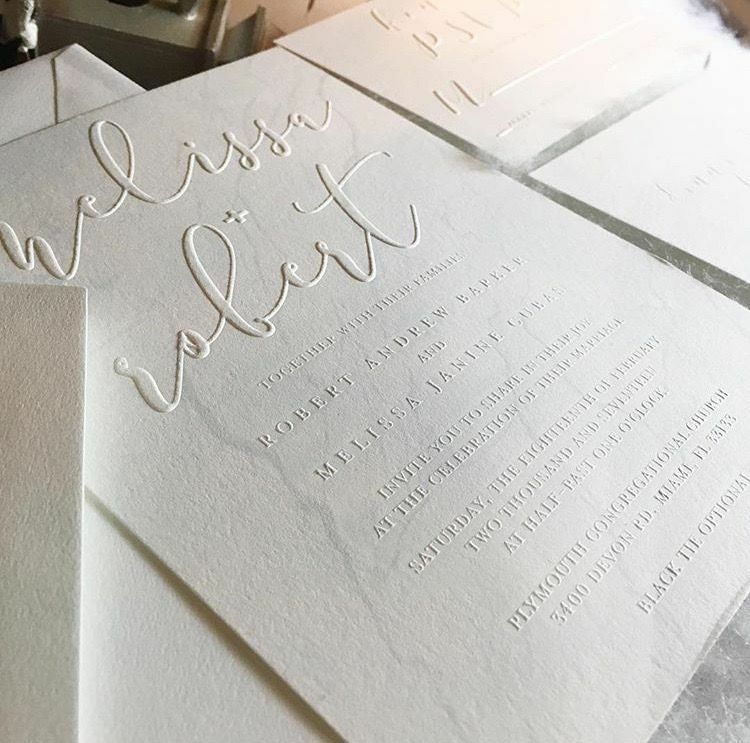 melissa
+
robert
TOGETHER WITH THEIR FAMILIES
ROBERT ANDREW BARKER
AND
MELISSA JANINE CUBAS
INVITE YOU TO SHARE IN THEIR JOY
AT THE CELEBRATION OF THEIR MARRIAGE
SATURDAY, THE EIGHTEENTH OF FEBRUARY
TWO THOUSAND AND SEVENTEEN
AT HALF-PAST ONE O'CLOCK
PLYMOUTH CONGREGATIONAL CHURCH
3400 DEVON RD. MIAMI, FL 33133
BLACK TIE OPTIONAL
RSVP
M